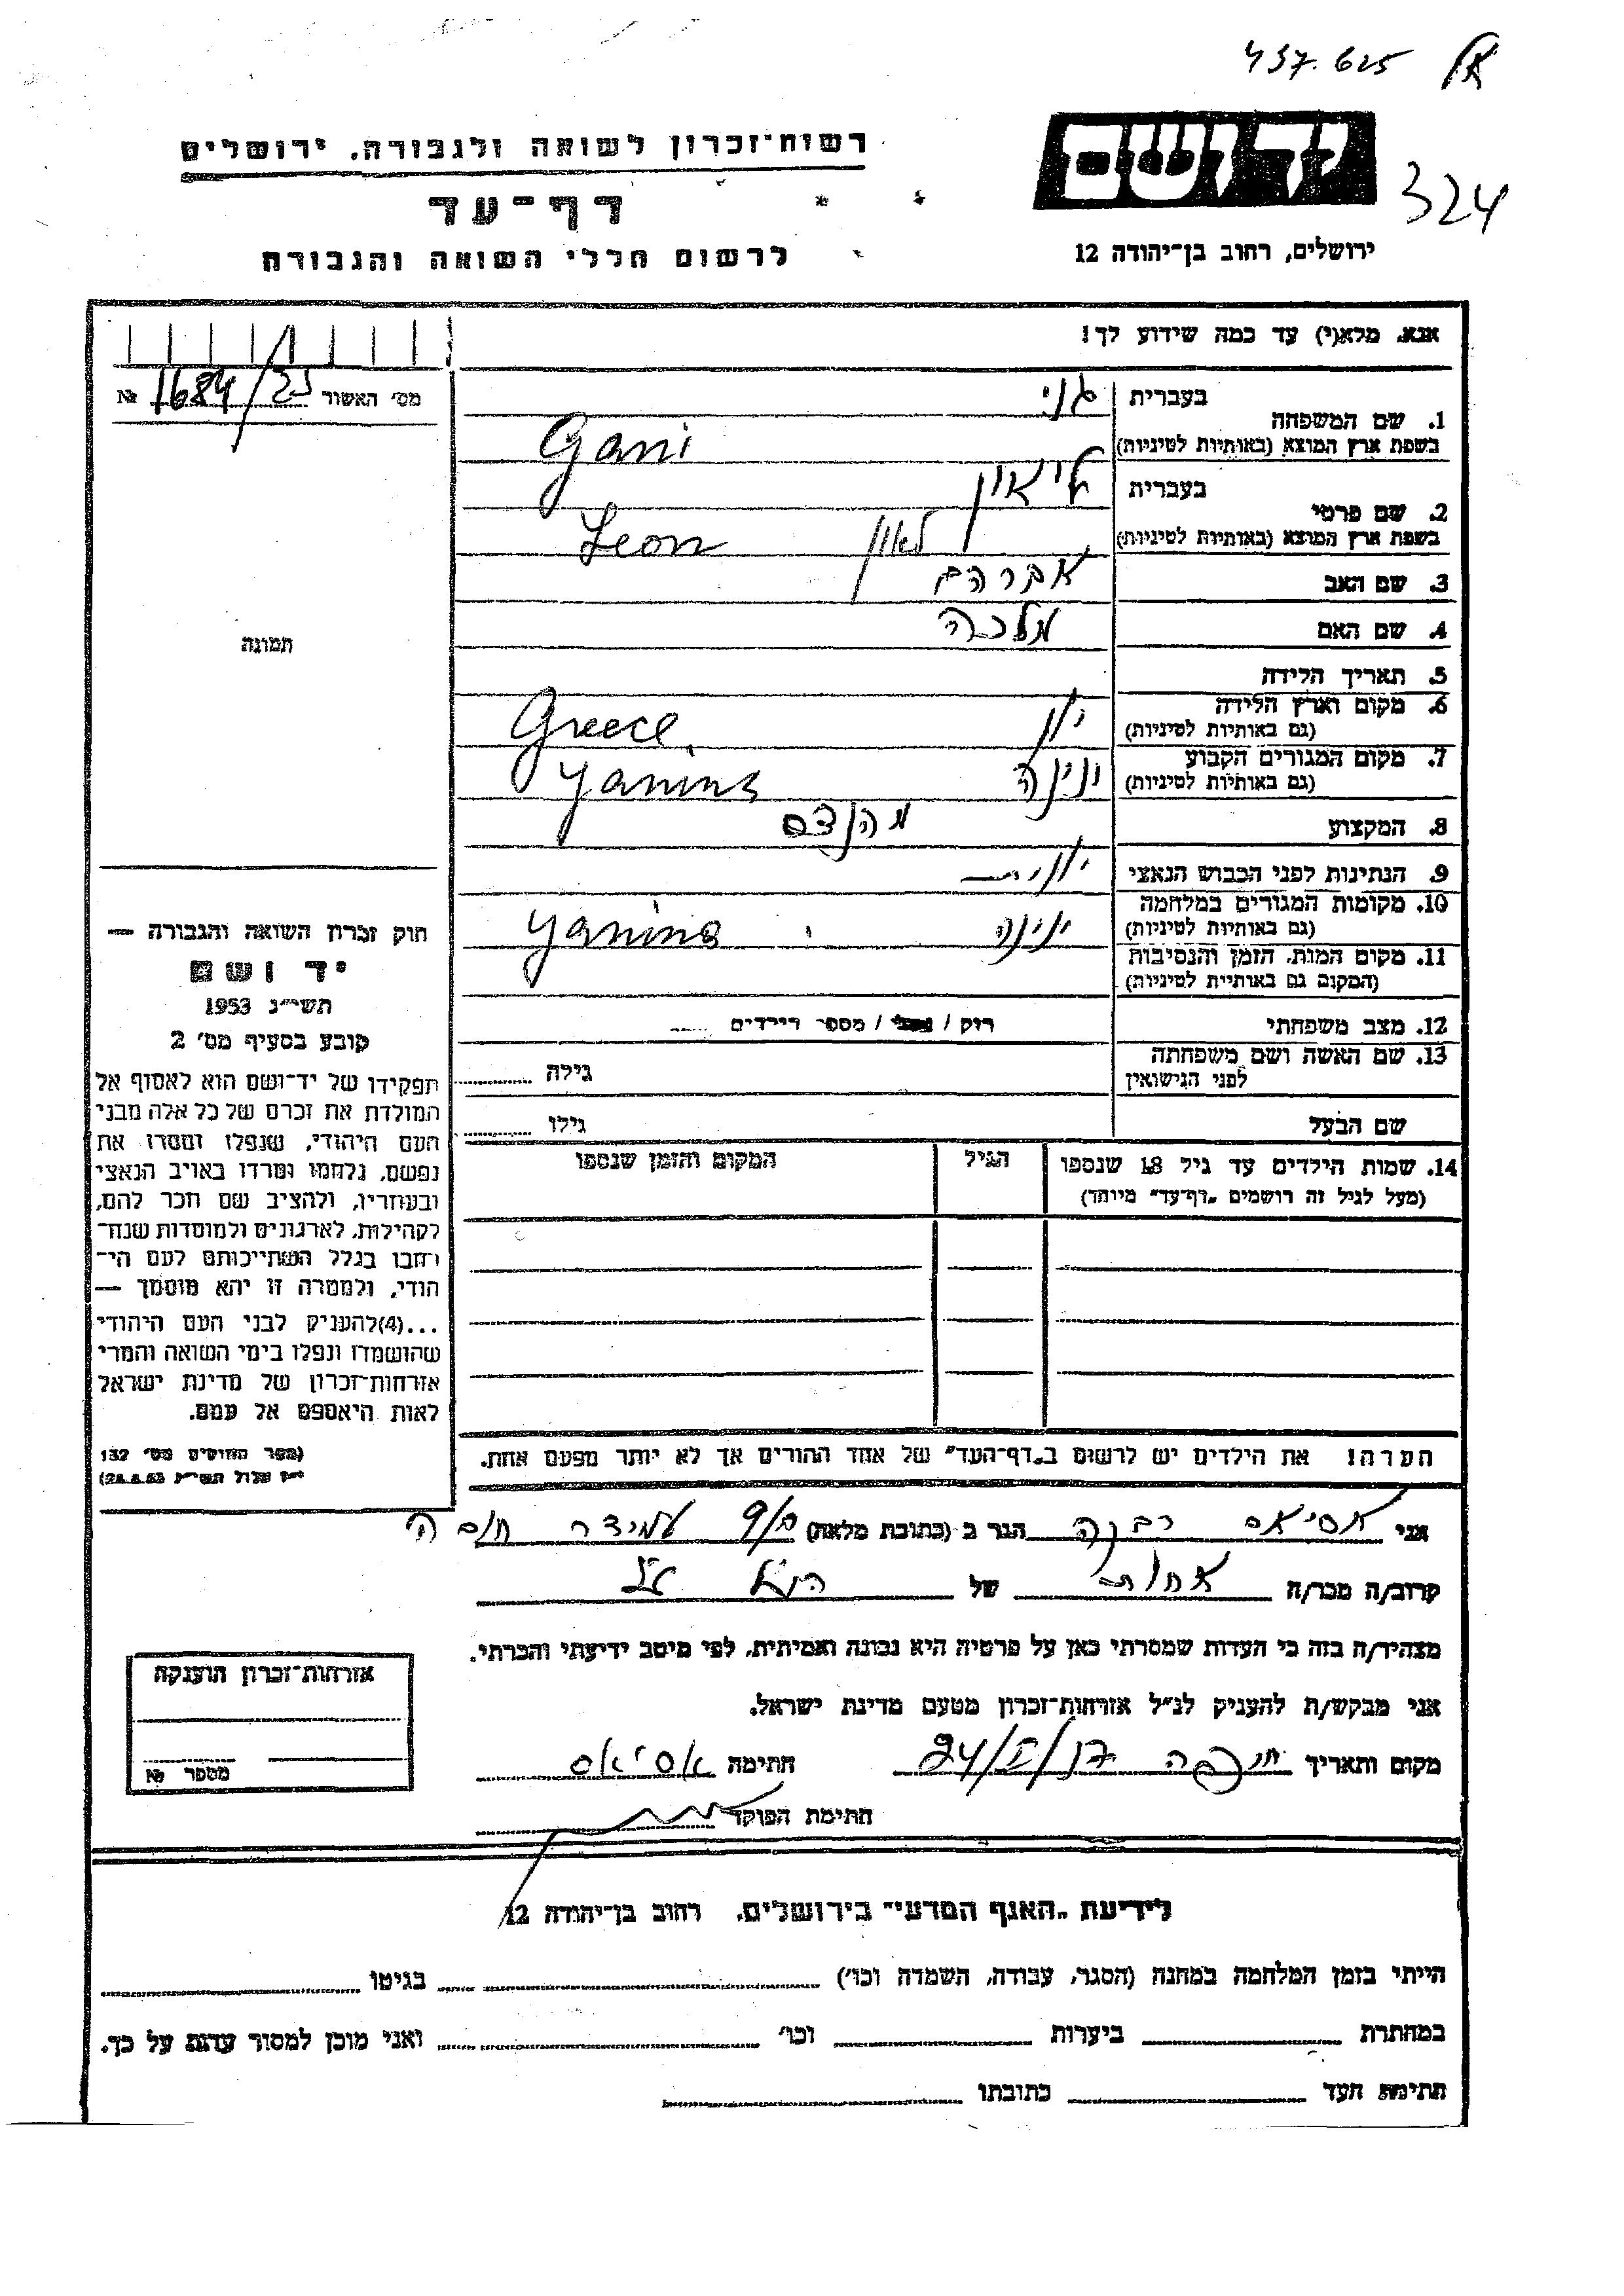 437.625
רשות־זכרון לשואה ולגבורה. ירושלים
יד ושם
324
דף־עד
ירושלים, רחוב בן־יהודה 12
לרשום חללי השואה והגבורה
אנא, מלא(י) עד כמה שידוע לך!
מס׳ האשור 1684/25 №
1. שם המשפחה
בעברית גני
בשפת ארץ המוצא (באותיות לטיניות) Gani
2. שם פרטי
בעברית ליאון
בשפת ארץ המוצא (באותיות לטיניות) לאון Leon
3. שם האב אברהם
4. שם האם מלכה
5. תאריך הלידה
6. מקום וארץ הלידה יון Greece
(גם באותיות לטיניות)
7. מקום המגורים הקבוע ינינה Yanina
(גם באותיות לטיניות)
8. המקצוע מהנדס
9. הנתינות לפני הכבוש הנאצי יונית
10. מקומות המגורים במלחמה ינינה Yanina
(גם באותיות לטיניות)
11. מקום המות, הזמן והנסיבות
(המקום גם באותיות לטיניות)
12. מצב משפחתי רוק / נשוי / מספר הילדים
13. שם האשה ושם משפחתה
לפני הנישואין
גילה
שם הבעל גילו
14. שמות הילדים עד גיל 18 שנספו
(מעל לגיל זה רושמים „דף־עד״ מיוחד)
הגיל
המקום והזמן שנספו
הערה! את הילדים יש לרשום ב„דף־העד״ של אחד ההורים אך לא יותר מפעם אחת.
תמונה
חוק זכרון השואה והגבורה —
יד ושם
תשי״ג 1953
קובע בסעיף מס׳ 2
תפקידו של יד־ושם הוא לאסוף אל
המולדת את זכרם של כל אלה מבני
העם היהודי, שנפלו ומסרו את
נפשם, נלחמו ומרדו באויב הנאצי
ובעוזריו, ולהציב שם וזכר להם,
לקהילות, לארגונים ולמוסדות שנח־
רחבו בגלל השתייכותם לעם הי־
הודי, ולמטרה זו יהא מוסמך —
...(4)להעניק לבני העם היהודי
שהושמדו ונפלו בימי השואה והמרי
אזרחות־זכרון של מדינת ישראל
לאות היאספם אל עמם.
(ספר החוקים מס׳ 132
י״ז אלול תשי״ג 28.8.53)
אני אסיאס רבקה הגר ב (כתובת מלאה)
קרוב/ה מכר/ה אחות של הנ״ל
מצהיר/ה בזה כי העדות שמסרתי כאן על פרטיה היא נכונה ואמיתית, לפי מיטב ידיעתי והכרתי.
אני מבקש/ת להעניק לנ״ל אזרחות־זכרון מטעם מדינת ישראל.
מקום ותאריך חיפה חתימה אסיאס
חתימת הפוקד
אזרחות־זכרון הוענקה
מספר №
לידיעת „האגף המדעי״ בירושלים, רחוב בן־יהודה 12
הייתי בזמן המלחמה במחנה (הסגר, עבודה, השמדה וכו׳) בגיטו
במחתרת ביערות וכו׳ ואני מוכן למסור עדות על כך.
חתימת העד כתובתו